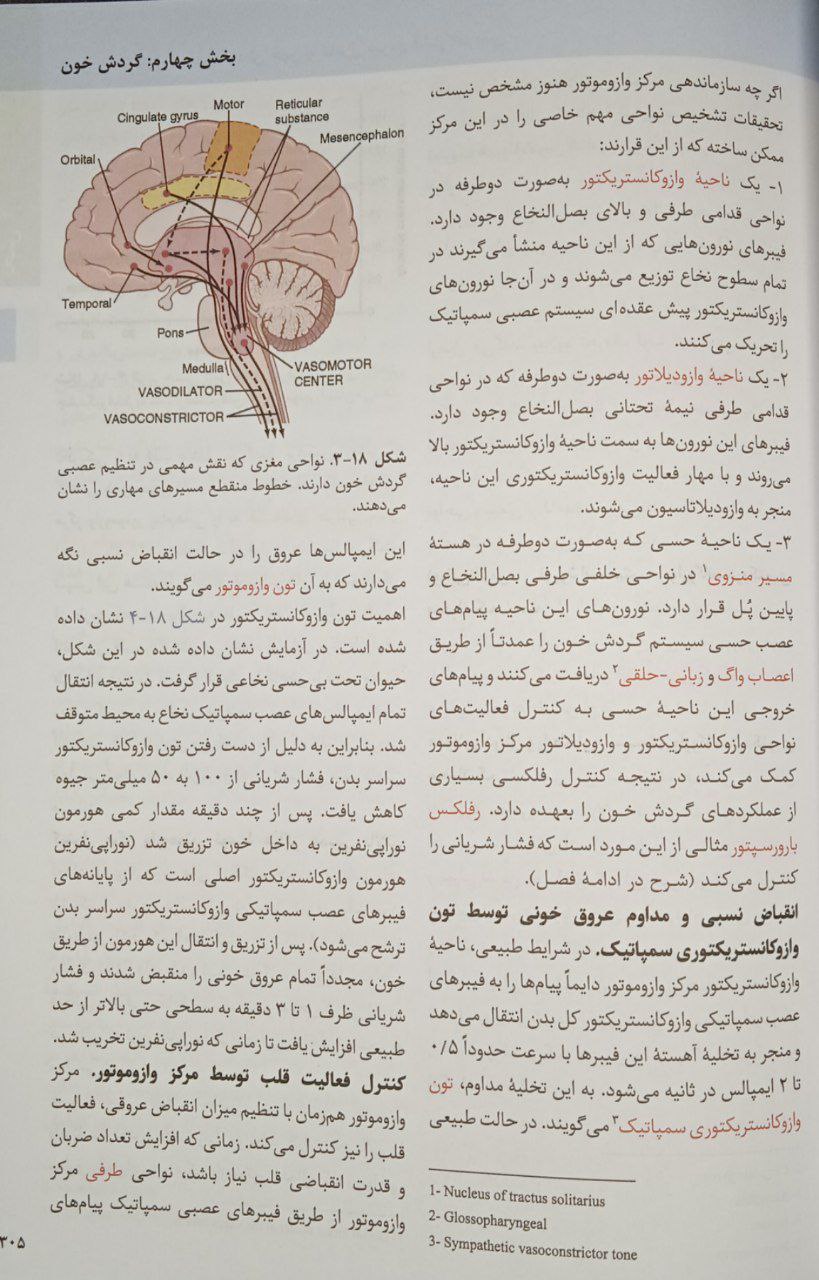 بخش چهارم: گردش خون
اگر چه سازماندهی مرکز وازوموتور هنوز مشخص نیست،
تحقیقات تشخیص نواحی مهم خاصی را در این مرکز
ممکن ساخته که از این قرارند:
۱- یک ناحیهٔ وازوکانستریکتور به‌صورت دوطرفه در
نواحی قدامی طرفی و بالای بصل‌النخاع وجود دارد.
فیبرهای نورون‌هایی که از این ناحیه منشأ می‌گیرند در
تمام سطوح نخاع توزیع می‌شوند و در آن‌جا نورون‌های
وازوکانستریکتور پیش عقده‌ای سیستم عصبی سمپاتیک
را تحریک می‌کنند.
۲- یک ناحیهٔ وازودیلاتور به‌صورت دوطرفه که در نواحی
قدامی طرفی نیمهٔ تحتانی بصل‌النخاع وجود دارد.
فیبرهای این نورون‌ها به سمت ناحیهٔ وازوکانستریکتور بالا
می‌روند و با مهار فعالیت وازوکانستریکتوری این ناحیه،
منجر به وازودیلاتاسیون می‌شوند.
۳- یک ناحیهٔ حسی که به‌صورت دوطرفه در هستهٔ
مسیر منزوی۱ در نواحی خلفی طرفی بصل‌النخاع و
پایین پُل قرار دارد. نورون‌های این ناحیه پیام‌های
عصب حسی سیستم گردش خون را عمدتاً از طریق
اعصاب واگ و زبانی-حلقی۲ دریافت می‌کنند و پیام‌های
خروجی این ناحیهٔ حسی به کنترل فعالیت‌های
نواحی وازوکانستریکتور و وازودیلاتور مرکز وازوموتور
کمک می‌کند، در نتیجه کنترل رفلکسی بسیاری
از عملکردهای گردش خون را بعهده دارد. رفلکس
بارورسپتور مثالی از این مورد است که فشار شریانی را
کنترل می‌کند (شرح در ادامهٔ فصل).
انقباض نسبی و مداوم عروق خونی توسط تون
وازوکانستریکتوری سمپاتیک. در شرایط طبیعی، ناحیهٔ
وازوکانستریکتور مرکز وازوموتور دایماً پیام‌ها را به فیبرهای
عصب سمپاتیکی وازوکانستریکتور کل بدن انتقال می‌دهد
و منجر به تخلیهٔ آهستهٔ این فیبرها با سرعت حدوداً ۰/۵
تا ۲ ایمپالس در ثانیه می‌شود. به این تخلیهٔ مداوم، تون
وازوکانستریکتوری سمپاتیک۳ می‌گویند. در حالت طبیعی
1- Nucleus of tractus solitarius
2- Glossopharyngeal
3- Sympathetic vasoconstrictor tone
Cingulate gyrus
Motor
Reticular
substance
Mesencephalon
Orbital
Temporal
Pons
Medulla
VASOMOTOR
CENTER
VASODILATOR
VASOCONSTRICTOR
شکل ۱۸-۳. نواحی مغزی که نقش مهمی در تنظیم عصبی
گردش خون دارند. خطوط منقطع مسیرهای مهاری را نشان
می‌دهند.
این ایمپالس‌ها عروق را در حالت انقباض نسبی نگه
می‌دارند که به آن تون وازوموتور می‌گویند.
اهمیت تون وازوکانستریکتور در شکل ۱۸-۴ نشان داده
شده است. در آزمایش نشان داده شده در این شکل،
حیوان تحت بی‌حسی نخاعی قرار گرفت. در نتیجه انتقال
تمام ایمپالس‌های عصب سمپاتیک نخاع به محیط متوقف
شد. بنابراین به دلیل از دست رفتن تون وازوکانستریکتور
سراسر بدن، فشار شریانی از ۱۰۰ به ۵۰ میلی‌متر جیوه
کاهش یافت. پس از چند دقیقه مقدار کمی هورمون
نوراپی‌نفرین به داخل خون تزریق شد (نوراپی‌نفرین
هورمون وازوکانستریکتور اصلی است که از پایانه‌های
فیبرهای عصب سمپاتیکی وازوکانستریکتور سراسر بدن
ترشح می‌شود). پس از تزریق و انتقال این هورمون از طریق
خون، مجدداً تمام عروق خونی را منقبض شدند و فشار
شریانی ظرف ۱ تا ۳ دقیقه به سطحی حتی بالاتر از حد
طبیعی افزایش یافت تا زمانی که نوراپی‌نفرین تخریب شد.
کنترل فعالیت قلب توسط مرکز وازوموتور. مرکز
وازوموتور هم‌زمان با تنظیم میزان انقباض عروقی، فعالیت
قلب را نیز کنترل می‌کند. زمانی که افزایش تعداد ضربان
و قدرت انقباضی قلب نیاز باشد، نواحی طرفی مرکز
وازوموتور از طریق فیبرهای عصبی سمپاتیک پیام‌های
۳۰۵